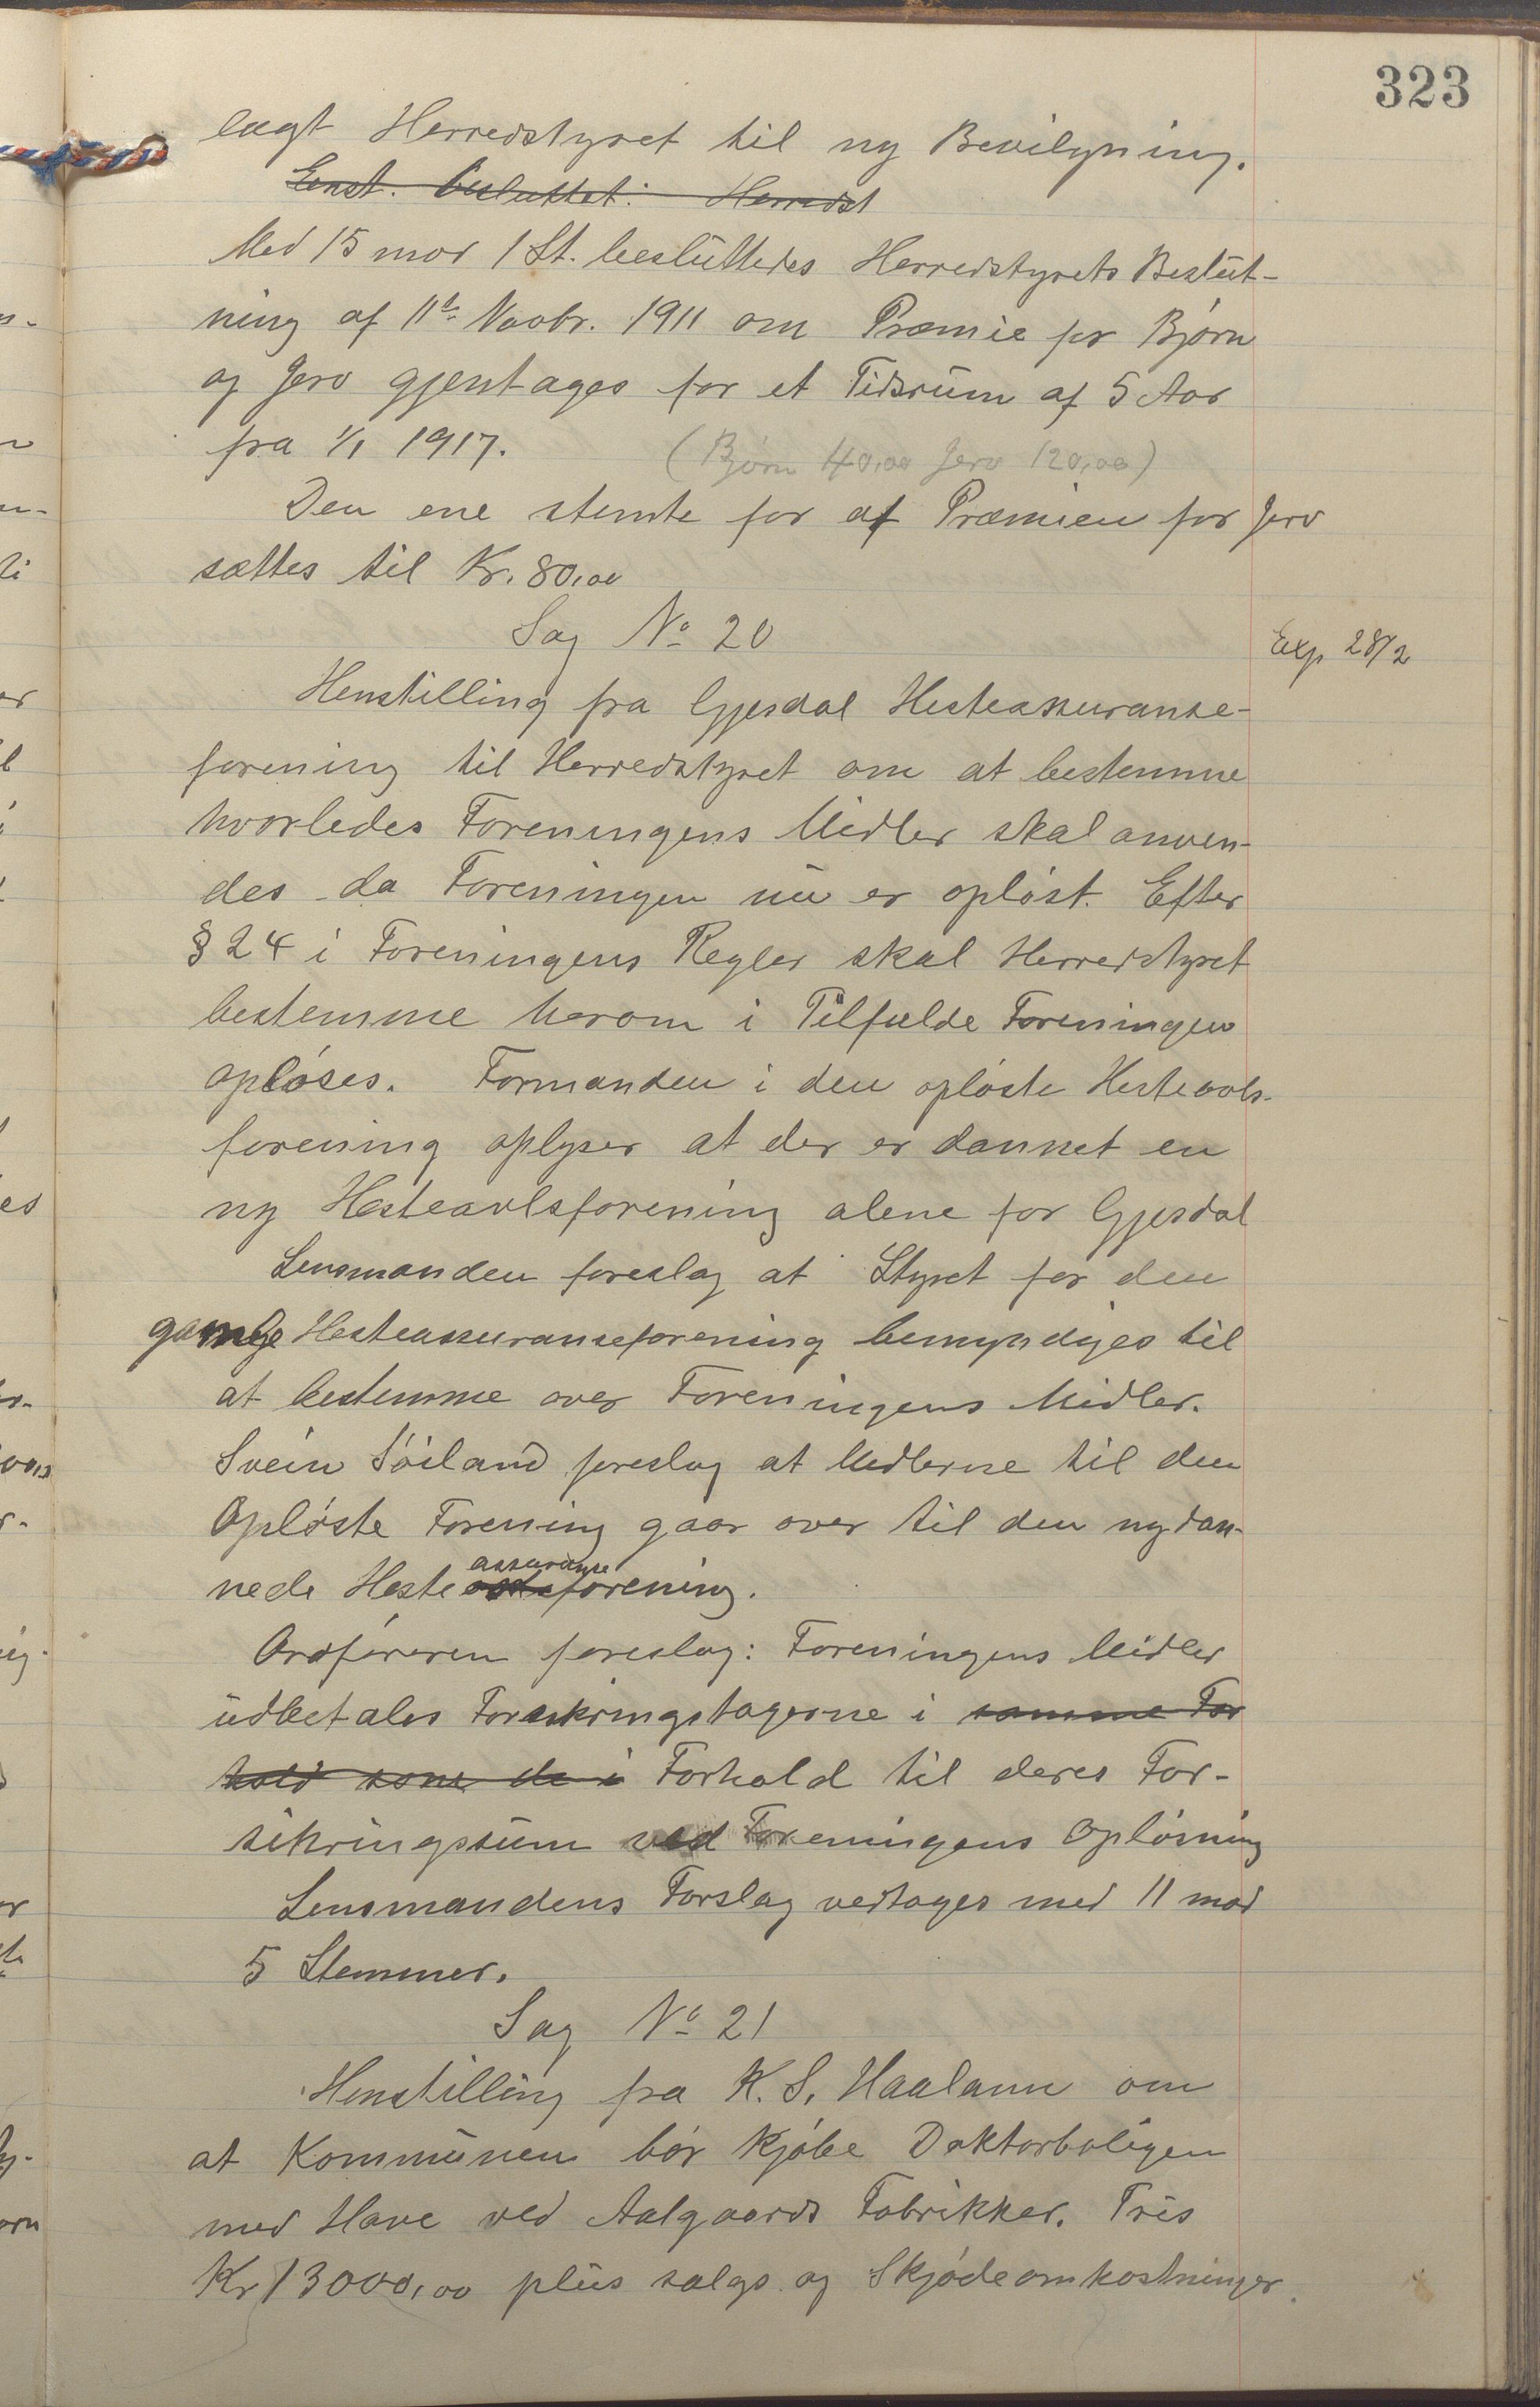 323
lagt Herredstyret til ny Bevilgning.
Enst. besluttet: Herredst
Med 15 mod 1 St. besluttedes Herredstyrets Beslut-
ning af 11te Novbr. 1911 om Præmie for Bjørn
og Jerv gjentages for et Tidsrum af 5 Aar
fra 1/1 1917. (Bjørn 40,00 Jerv 120,00)
Den ene stemte for at Præmien for Jerv
sættes til Kr. 80,00
Sag No 20
Exp 28/2
Henstilling fra Gjesdal Hesteassuranse-
forening til Herredstyret om at bestemme
hvorledes Foreningens Midler skal anven-
des da Foreningen nu er opløst. Efter
§ 24 i Foreningens Regler skal Herredstyret
bestemme herom i Tilfælde Foreningen
opløses. Formanden i den opløste Hesteavls-
forening oplyser at der er dannet en
ny Hesteavlsforening alene for Gjesdal
Lensmanden foreslog at Styret for den
gamle Hesteassuranseforening bemyndiges til
at bestemme over Foreningens Midler.
Svein Søiland foreslog at Midlerne til den
Opløste Forening gaar over til den nydan-
nede Hesteavlsforening.
assuranse
Ordføreren foreslog: Foreningens Midler
udbetales Forsikringstagerne i samme For
hold som de i Forhold til deres For-
sikringssum ved Foreningens Opløsning
Lensmandens Forslag vedtages med 11 mod
5 Stemmer.
Sag No 21
Henstilling fra K. S. Haaland om
at Kommunen bør kjøbe Doktorboligen
med Have ved Aalgaards Fabrikker. Pris
Kr 13000,00 plus salgs og Skjødeomkostninger.